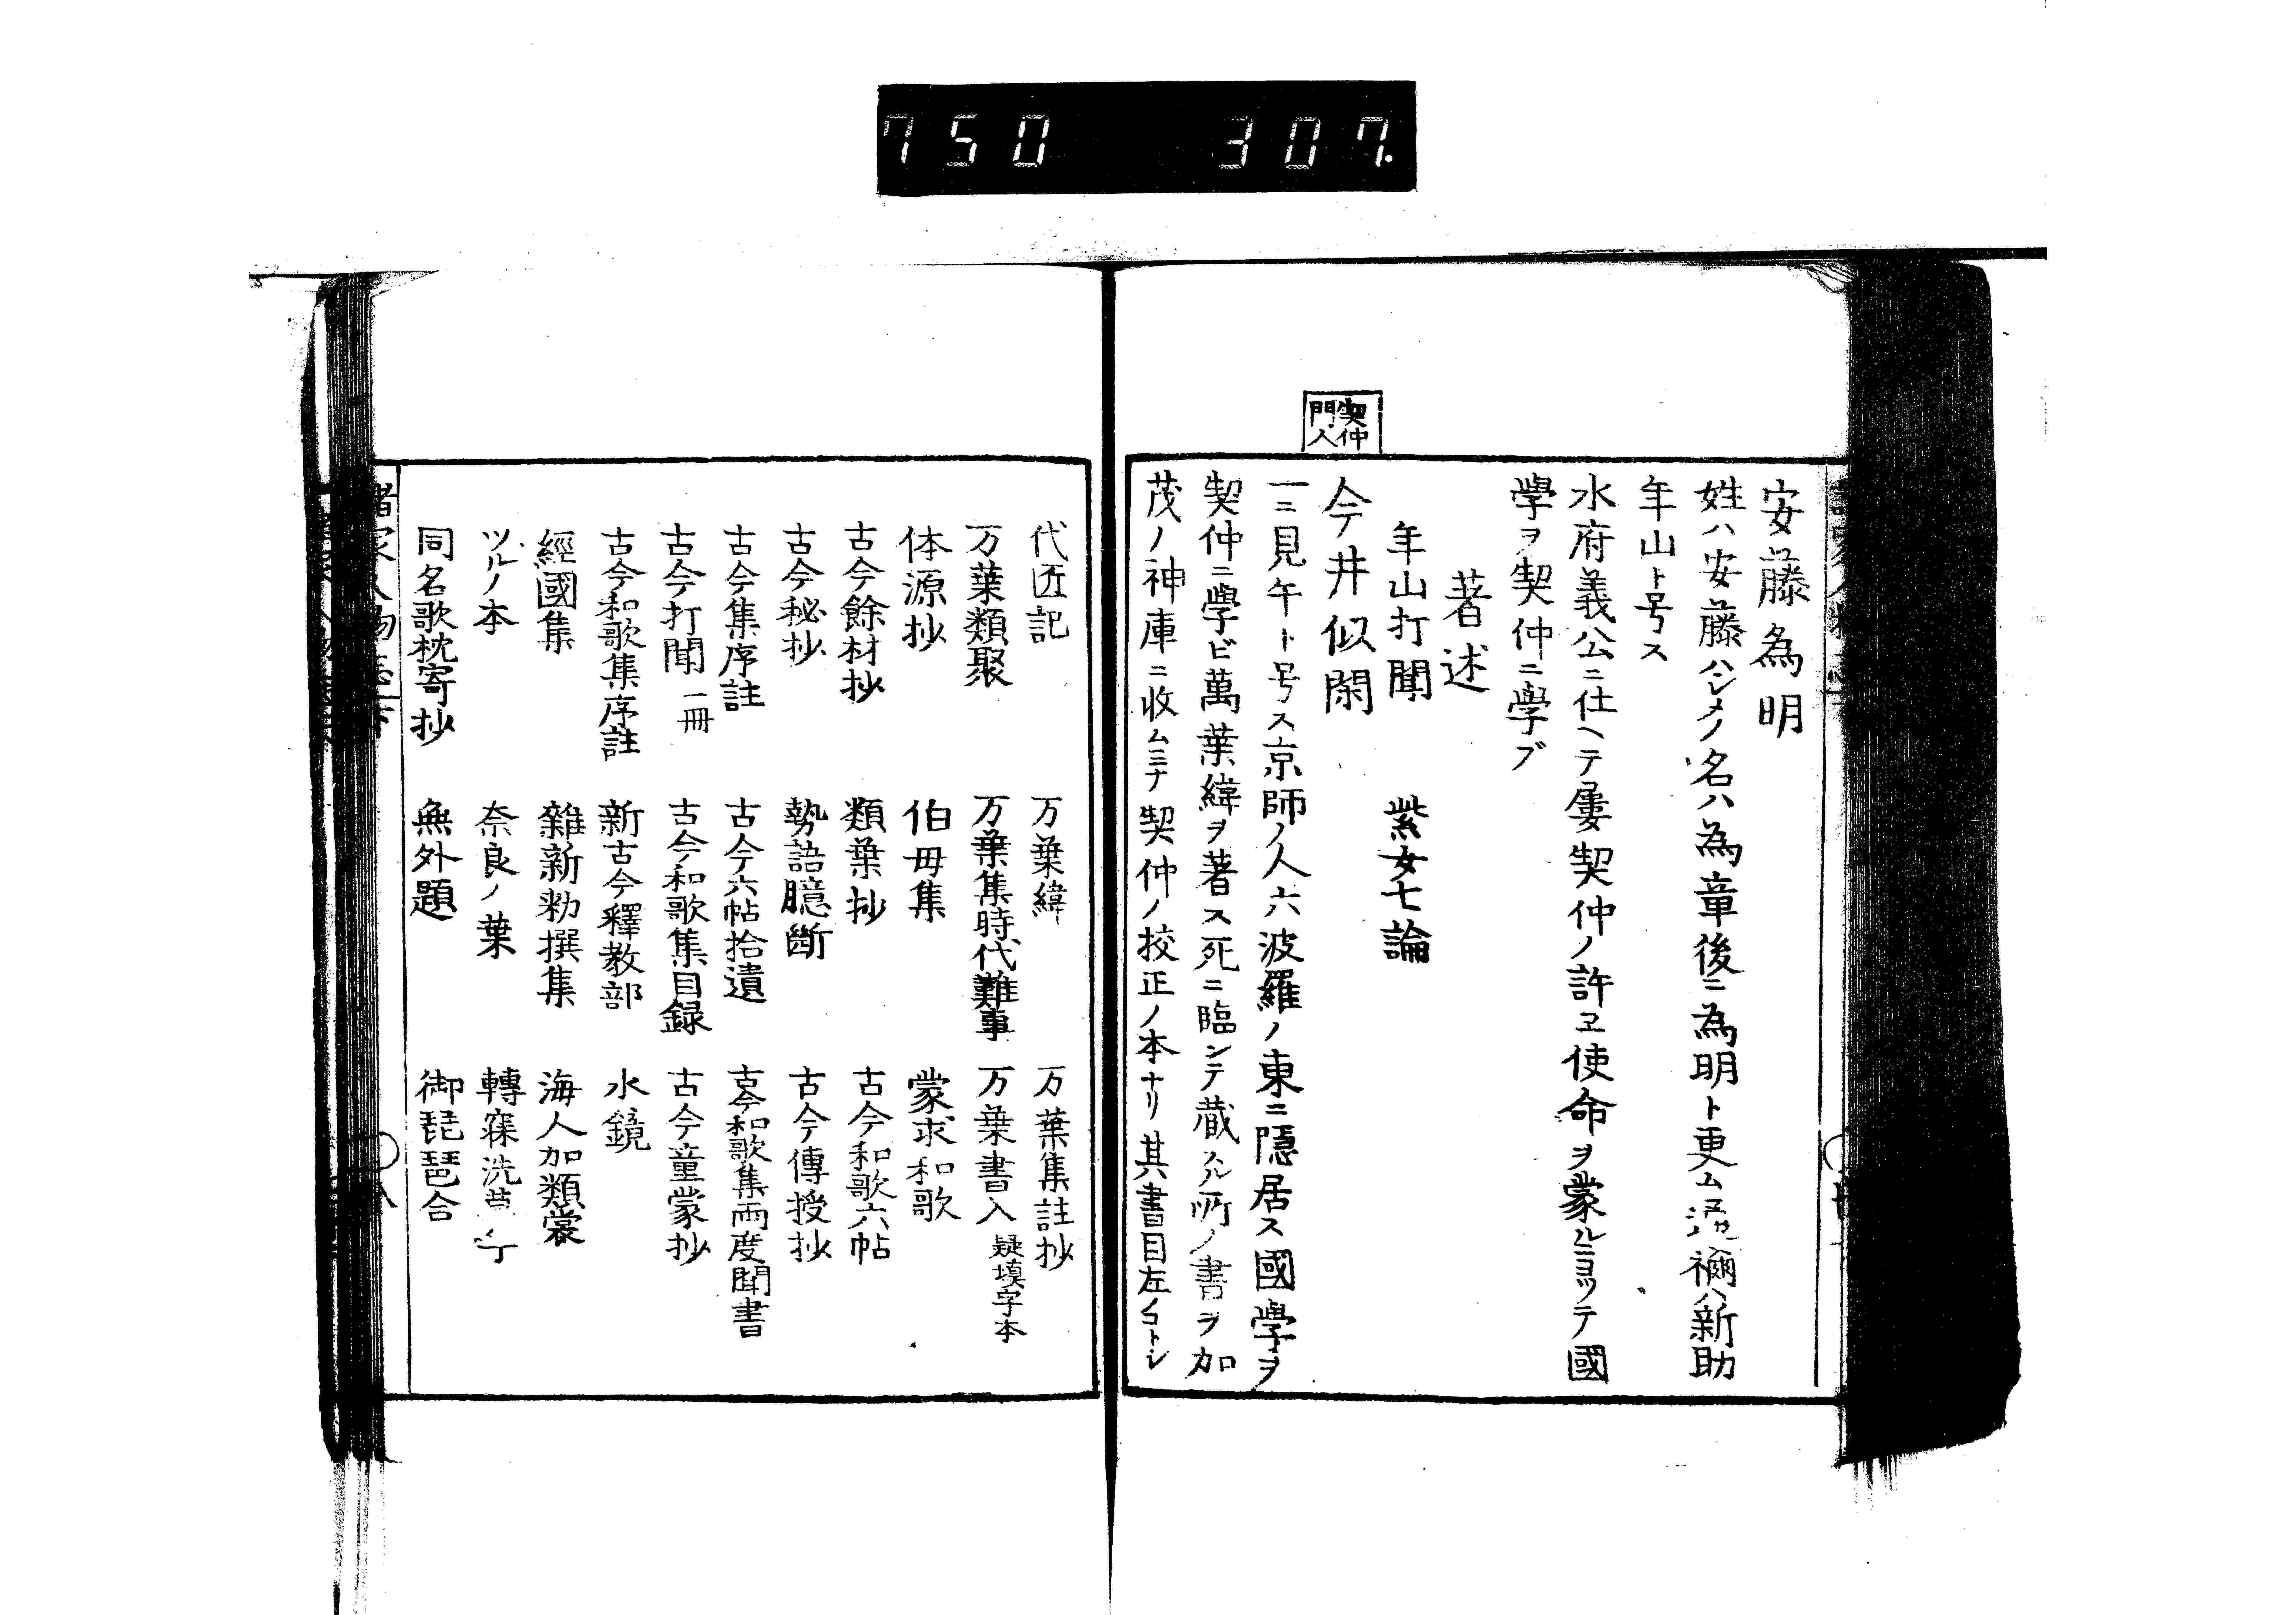 750 307.
安藤為明
姓ハ安藤ハシメノ名ハ為章後ニ為明ト更ム通稱ハ新助
年山ト号ス
水府義公ニ仕ヘテ屡契仲ノ許ヱ使命ヲ蒙ルニヨツテ國
學ヲ契仲ニ學ブ
著述
年山打聞 紫女七論
契仲門人
今井似閑
一ニ見牛ト号ス京師ノ人六波羅ノ東ニ隠居ス國學ヲ
契仲ニ學ビ萬葉緯ヲ著ス死ニ臨ンテ蔵スル所ノ書ヲ加
茂ノ神庫ニ收ムミナ契仲ノ挍正ノ本ナリ其書目左ノコトシ
代匠記 万葉緯 万葉集註抄
万葉類聚 万葉集時代難事 万葉書入 疑填字本
体源抄 伯毋集 蒙求和歌
古今餘材抄 類葉抄 古今和歌六帖
古今秘抄 勢語臆斷 古今傳授抄
古今集序註 古今六帖拾遺 古今和歌集兩度聞書
古今打聞 一冊 古今和歌集目録 古今童蒙抄
古今和歌集序註 新古今釋教部 水鏡
經國集 雜新勅撰集 海人加類裳
ツルノ本 奈良ノ葉 轉寐洗
同名歌枕寄抄 無外題 御琵琶合
諸家人物志下